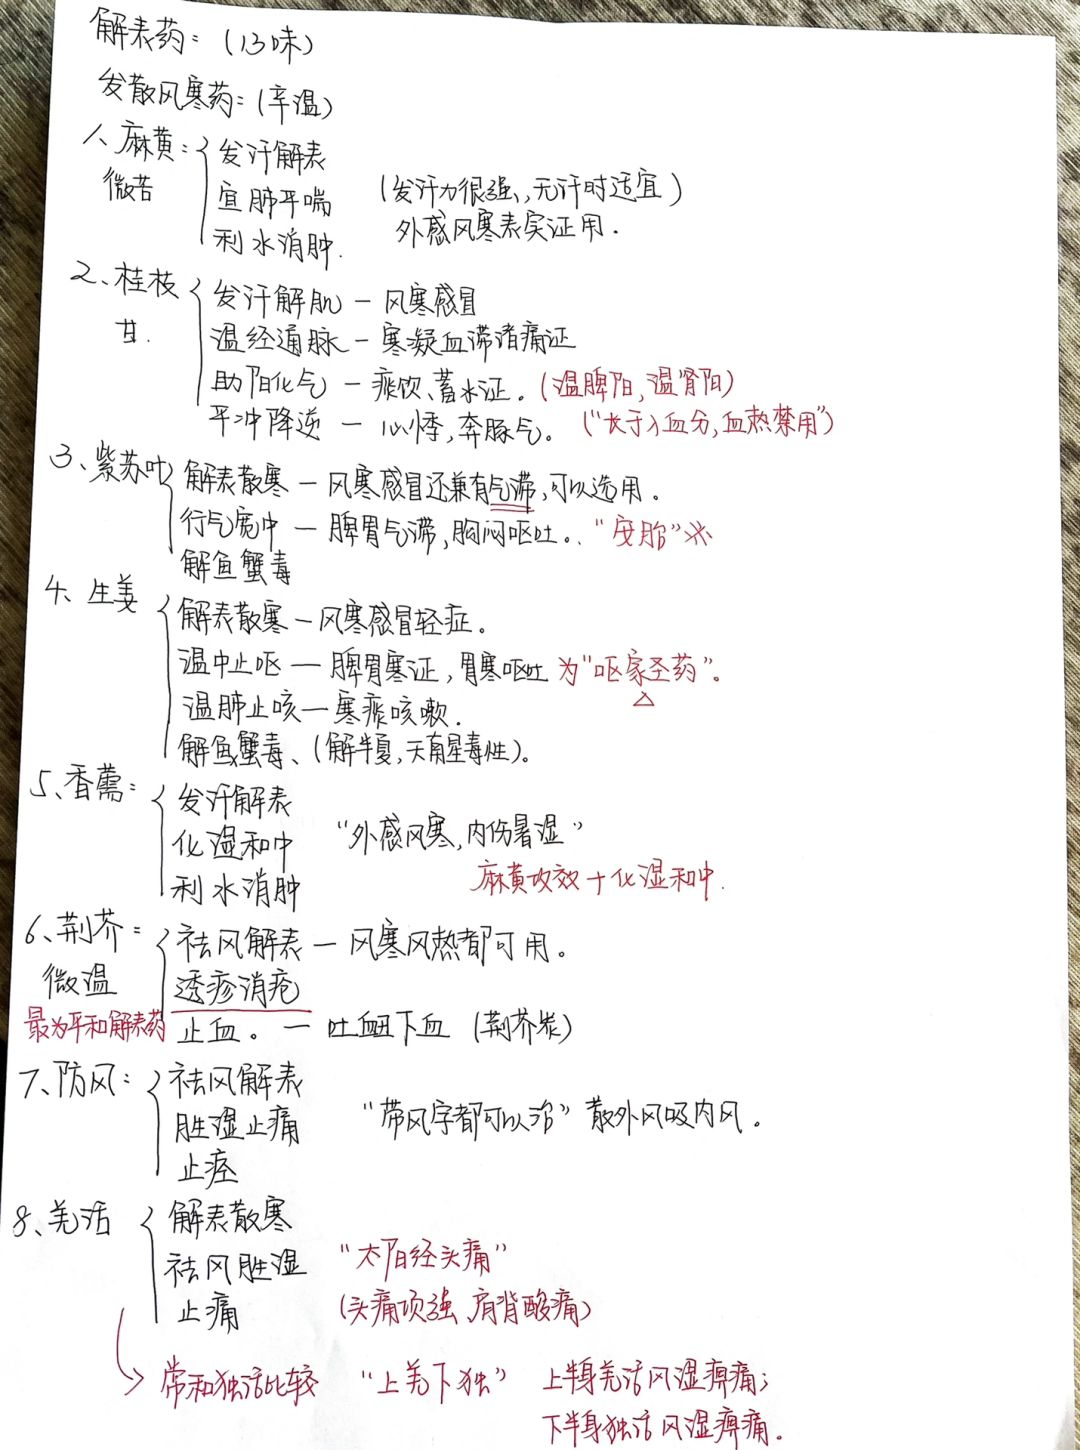 解表药：(13味)
发散风寒药：(辛温)
1、麻黄：发汗解表
微苦 宣肺平喘 (发汗力很强，无汗时适宜)
利水消肿. 外感风寒表实证用.
2、桂枝 发汗解肌 — 风寒感冒
甘. 温经通脉 — 寒凝血滞诸痛证
助阳化气 — 痰饮、蓄水证。(温脾阳，温肾阳)
平冲降逆 — 心悸，奔豚气。("长于入血分，血热禁用")
3、紫苏叶 解表散寒 — 风寒感冒还兼有气滞，可以选用.
行气宽中 — 脾胃气滞，胸闷呕吐。"安胎"※
解鱼蟹毒
4、生姜 解表散寒 — 风寒感冒轻症.
温中止呕 — 脾胃寒证，胃寒呕吐 为"呕家圣药".
温肺止咳 — 寒痰咳嗽.
解鱼蟹毒、(解半夏，天南星毒性)。
5、香薷：发汗解表
化湿和中 "外感风寒，内伤暑湿"
利水消肿 麻黄攻效＋化湿和中.
6、荆芥：祛风解表 — 风寒风热都可用。
微温 透疹消疮
最为平和解表药 止血。— 吐衄下血 (荆芥炭)
7、防风：祛风解表
胜湿止痛 "带风字都可以治" 散外风吸内风.
止痉
8、羌活 解表散寒
祛风胜湿 "太阳经头痛"
止痛 (头痛项强、肩背酸痛)
常和独活比较 "上羌下独" 上半身羌活风湿痹痛；
下半身独活风湿痹痛.